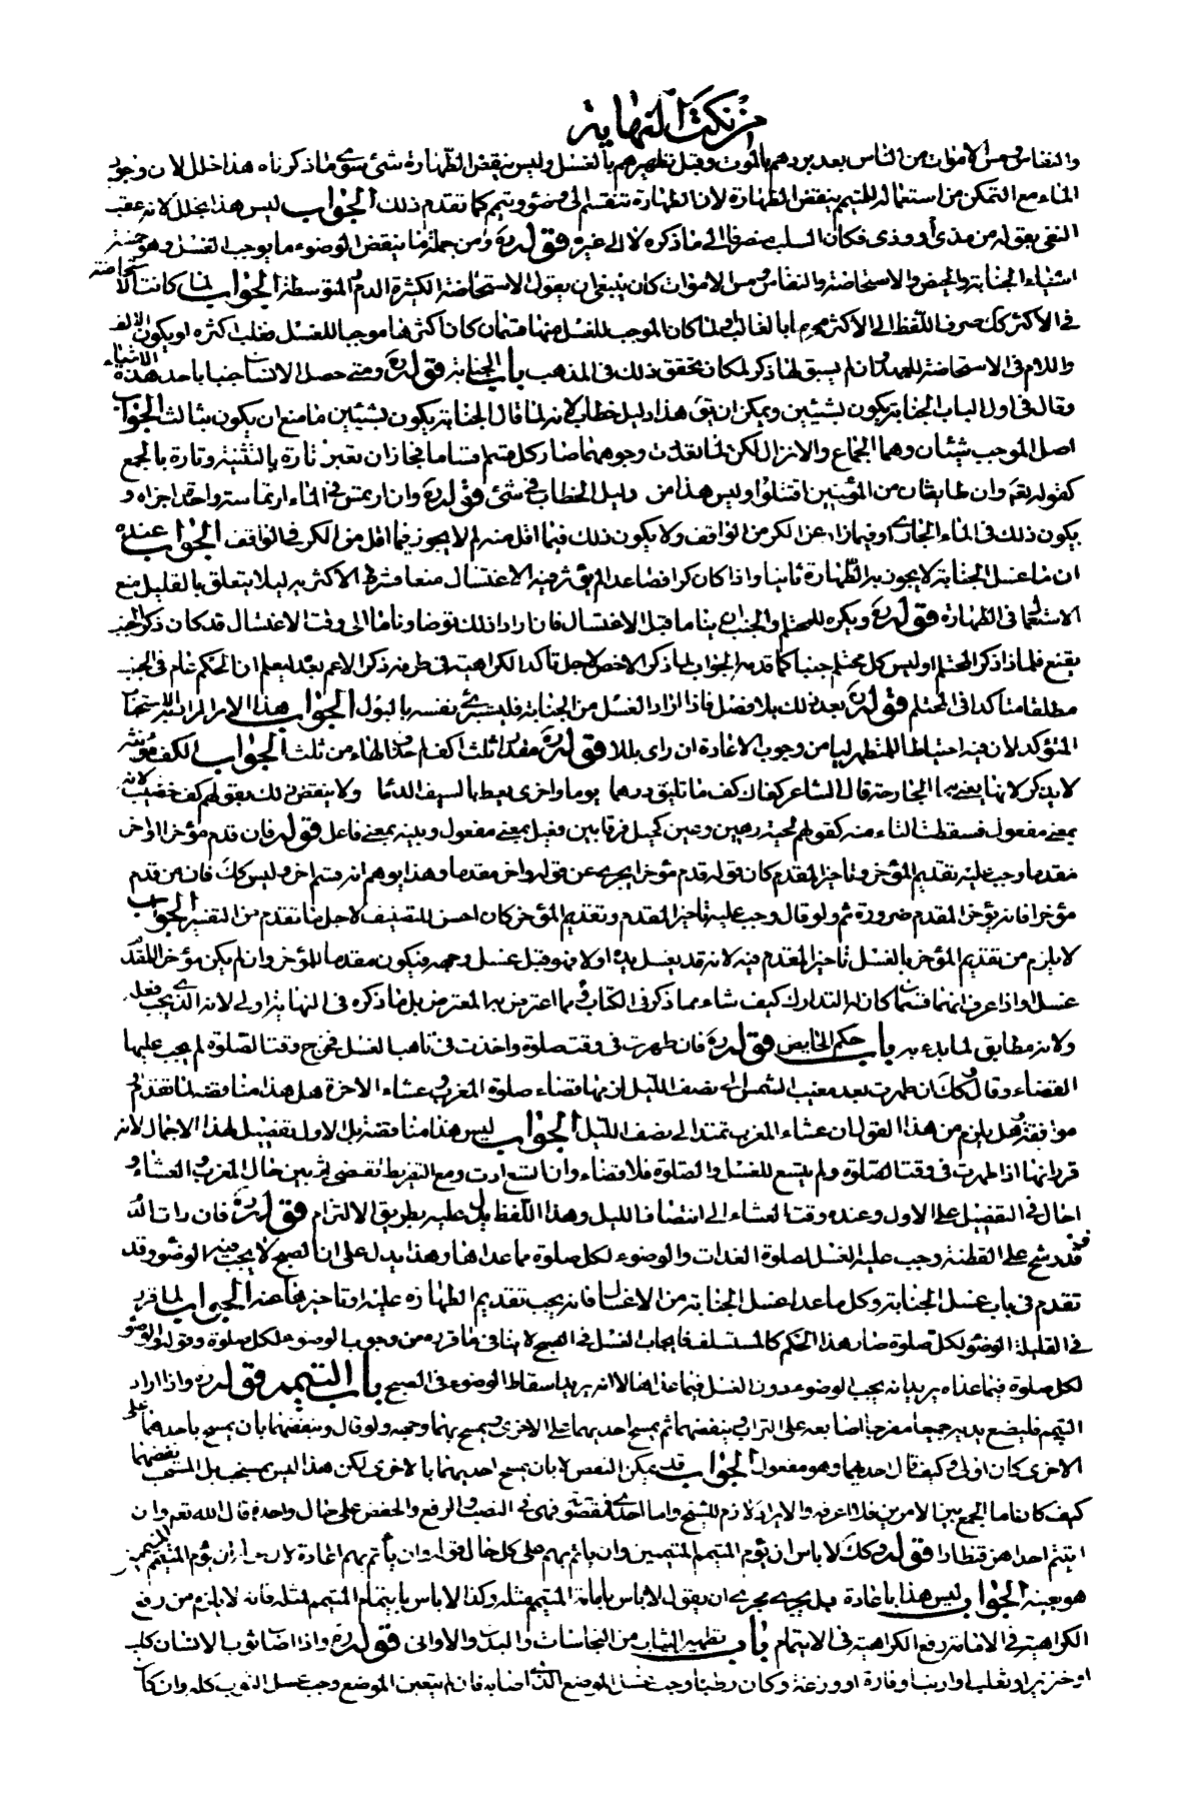 من نكت النهاية
والنفاس ومس الاموات من الناس بعد بردهم بالموت وقبل تطهيرهم بالغسل وليس ينقض الطهارة شئ سوى ما ذكرناه هذا خلل لان وجود
الماء مع التمكن من استعماله للمتيمم ينقض الطهارة لان الطهارة تنقسم الى وضوء وتيمم كما تقدم ذلك الجواب ليس هذا بخلل لانه عقب
النفى بقوله من مذى أو وذى فكان السلب منصرفا الى ما ذكره لا الى غيره قوله ره ومن جملة ما ينقض الوضوء ما يوجب الغسل وهو خمسة
اشياء الجنابة والحيض والاستحاضة والنفاس ومس الاموات كان ينبغى ان يقول الاستحاضة الكثيرة الدم والمتوسطة الجواب لما كانت الاستحاضة
فى الاكثر كك صرف اللفظ الى الاكثر لما كان الموجب للغسل منها قسمان كان اكثرها موجبا للغسل فغلب كثره او يكون الالف
واللام فى الاستحاضة للعهد وان لم يسبق لها ذكر لمكان تحقق ذلك فى المذهب باب الجنابة قوله ره ومتى حصل الانسان جنبا باحد هذه الاشياء
وقال فى اول الباب الجنابة يكون بشيئين ويمكن ان يق هذا دليل خطاب لانه لما قال الجنابة يكون بشيئين ما منع ان يكون بثالث الجواب
اصل الموجب شيئان وهما الجماع والانزال لكن لما تعددت وجوههما صار كل قسم قساما فجاز ان تعبر تارة بالتثنية وتارة بالجمع
كقوله تعم وان طايفتان من المؤمنين اقتتلوا وليس هذا من دليل الخطاب فى شئ قوله ره وان ارتمس فى الماء ارتماسة واحدة اجزاه و
يكون ذلك فى الماء الجارى او فيما زاد عن الكر من الواقف ولا يكون ذلك فيما اقل منه لم لا يجوز فيما اقل من الكر فى الواقف الجواب عنده
ان ما غسل الجنابة لا يجوز به الطهارة ثانيا واذا كان كرا فصاعدا لم يؤثر فيه الاغتسال منعا فشرط الاكثرية ليلا يتعلق بالقليل منع
الاستعمال فى الطهارة قوله ره ويكره للمحتلم والجنب ان يناما قبل الاغتسال فان ارادا ذلك توضا وناما الى وقت الاغتسال قد كان ذكر الجنب
يقنع فلماذا ذكر المحتلم اوليس كل محتلم جنبا كما قدمه الجواب لما ذكر الاخص لاجل تاكد الكراهية فى طرفه ذكر الاعم بعد ليعلم ان الحكم عام فى الجنب
مطلقا متاكدا فى المحتلم قوله ره بعد ذلك بلا فصل فاذا اراد الغسل من الجنابة فليستبرئ نفسه بالبول الجواب هذا الامر المراد به الاستحباب
المؤكد لان فيه احتياطا للمتطهر ليامن وجوب الاعادة ان راى بللا قوله ره مقدار ثلث اكف لم حذف الهاء من ثلث الجواب الكف مؤنثة
لا يذكر لانها يعنى بها الجارحة قال الشاعر كفاك كف ما تليق درهما يوما واخرى يعط بالسيف الدما ولا ينقض ذلك بقولهم كف خضيب لانه
بمعنى مفعول فسقطت التاء منه كقولهم لحية دهين وعين كحيل فرقا بين فعيل بمعنى مفعول وبينه بمعنى فاعل قوله فان قدم مؤخرا او اخر
مقدما وجب عليه تقديم المؤخر وتاخير المقدم كان قوله قدم مؤخرا يجزى عن قوله واخر مقدما وهذا يوهم انه قسم اخر وليس كك فان من قدم
مؤخرا فانه يؤخر المقدم ضرورة ثم ولو قال وجب عليه تاخير المقدم وتقديم المؤخر كان احسن للتصنيف لاجل ما تقدم من التقسيم الجواب
لا يلزم من تقديم المؤخر بالغسل تاخير المقدم فيه لانه قد يغسل يديه اولا فهو قبل غسل وجهه فيكون مقدما للمؤخر وان لم يكن مؤخرا للمقدم
غسلا واذا عرف انهما قسمان كان له التدارك كيف شاء مما ذكر فى الكتاب وبما اعترض به المعترض بل ما ذكره فى النهاية اولى لانه الذى يجب فعله
ولانه مطابق لما بدء به باب حكم الحايض قوله ره فان طهرت فى وقت صلوة واخذت فى تاهب الغسل فخرج وقت الصلوة لم يجب عليها
القضاء وقال وكك ان طهرت بعد مغيب الشمس الى نصف الليل لزمها قضاء صلوة المغرب وعشاء الاخرة هل هذا مناقضه لما تقدم ام
موافقة وهل يلزم من هذا القول ان عشاء المغرب تمتد الى نصف الليل الجواب ليس هذا مناقضة بل الاول تفصيل لهذا الاجمال لانه
قرر انها اذا طهرت فى وقت الصلوة ولم يتسع للغسل والصلوة فلا قضاء وان اتسع ادت ومع التفريط تقضى ثم بين حال المغرب والعشاء و
احال فى التفصيل على الاول وعنده وقت العشاء الى انتصاف الليل وهذا اللفظ يدل عليه بطريق الالتزام قوله ره فان رات الدم
قد رشح على القطنة وجب عليها الغسل لصلوة الغداة والوضوء لكل صلوة مما عداها وهذا يدل على ان الصبح لا يجب فيه الوضوء وقد
تقدم فى باب غسل الجنابة وكل ما عدا غسل الجنابة من الاغسال فانه يجب تقديم الطهارة عليه او تاخيرها عنه الجواب لما قرر
فى القليلة الوضوء لكل صلوة صار هذا الحكم كالمستسلف فايجاب الغسل فى الصبح لا ينافى ما قرره من وجوب الوضوء لكل صلوة وقوله والوضوء
لكل صلوة فيما عداه يريد انه يجب الوضوء دون الغسل فيما عداها لا انه يريد اسقاط الوضوء فى الصبح باب التيمم قوله ره واذا اراد
التيمم فليضع يديه جميعا مفرجا اصابعه على التراب وينفضهما ثم يمسح احديهما على الاخرى ويمسح بهما وجهه ولو قال وينفضهما بان يمسح باحدهما على
الاخرى كان اولى وكيف قال احدهما وهو مفعول الجواب قد يمكن النفض لا بان يمسح احديهما بالاخرى لكن هذا ليس بمستحب بل المستحب نفضهما
كيف كان فاما الجمع بين الامرين فلا اعرفه والايراد لازم للشيخ واما احدى فمقصور فهى فى النصب والرفع والخفض على حال واحدة قال الله تعم وان
اتيتم احداهن قنطارا قوله وكك لا باس ان يؤم المتيمم المتيممين وان ياتم بهم على كل حال قوله وان يأتم بهم اعادة لان جواز ان يؤم المتيمم المتيممين
هو بعينه الجواب ليس هذا باعادة بل يجرى مجرى ان يقول لا باس بامامة المتيمم مثله وكذا لا باس بايتمام المتيمم لمثله فانه لا يلزم من رفع
الكراهية فى الامامة رفع الكراهية فى الايتمام باب تطهير الثياب من النجاسات والبدن والاوانى قوله ره واذا اصاب ثوب الانسان كلب
او خنزير او ثعلب او ارنب او فارة او وزغة وكان رطبا وجب غسل الموضع الذى اصابه فان لم يتعين الموضع وجب غسل الثوب كله وان كان